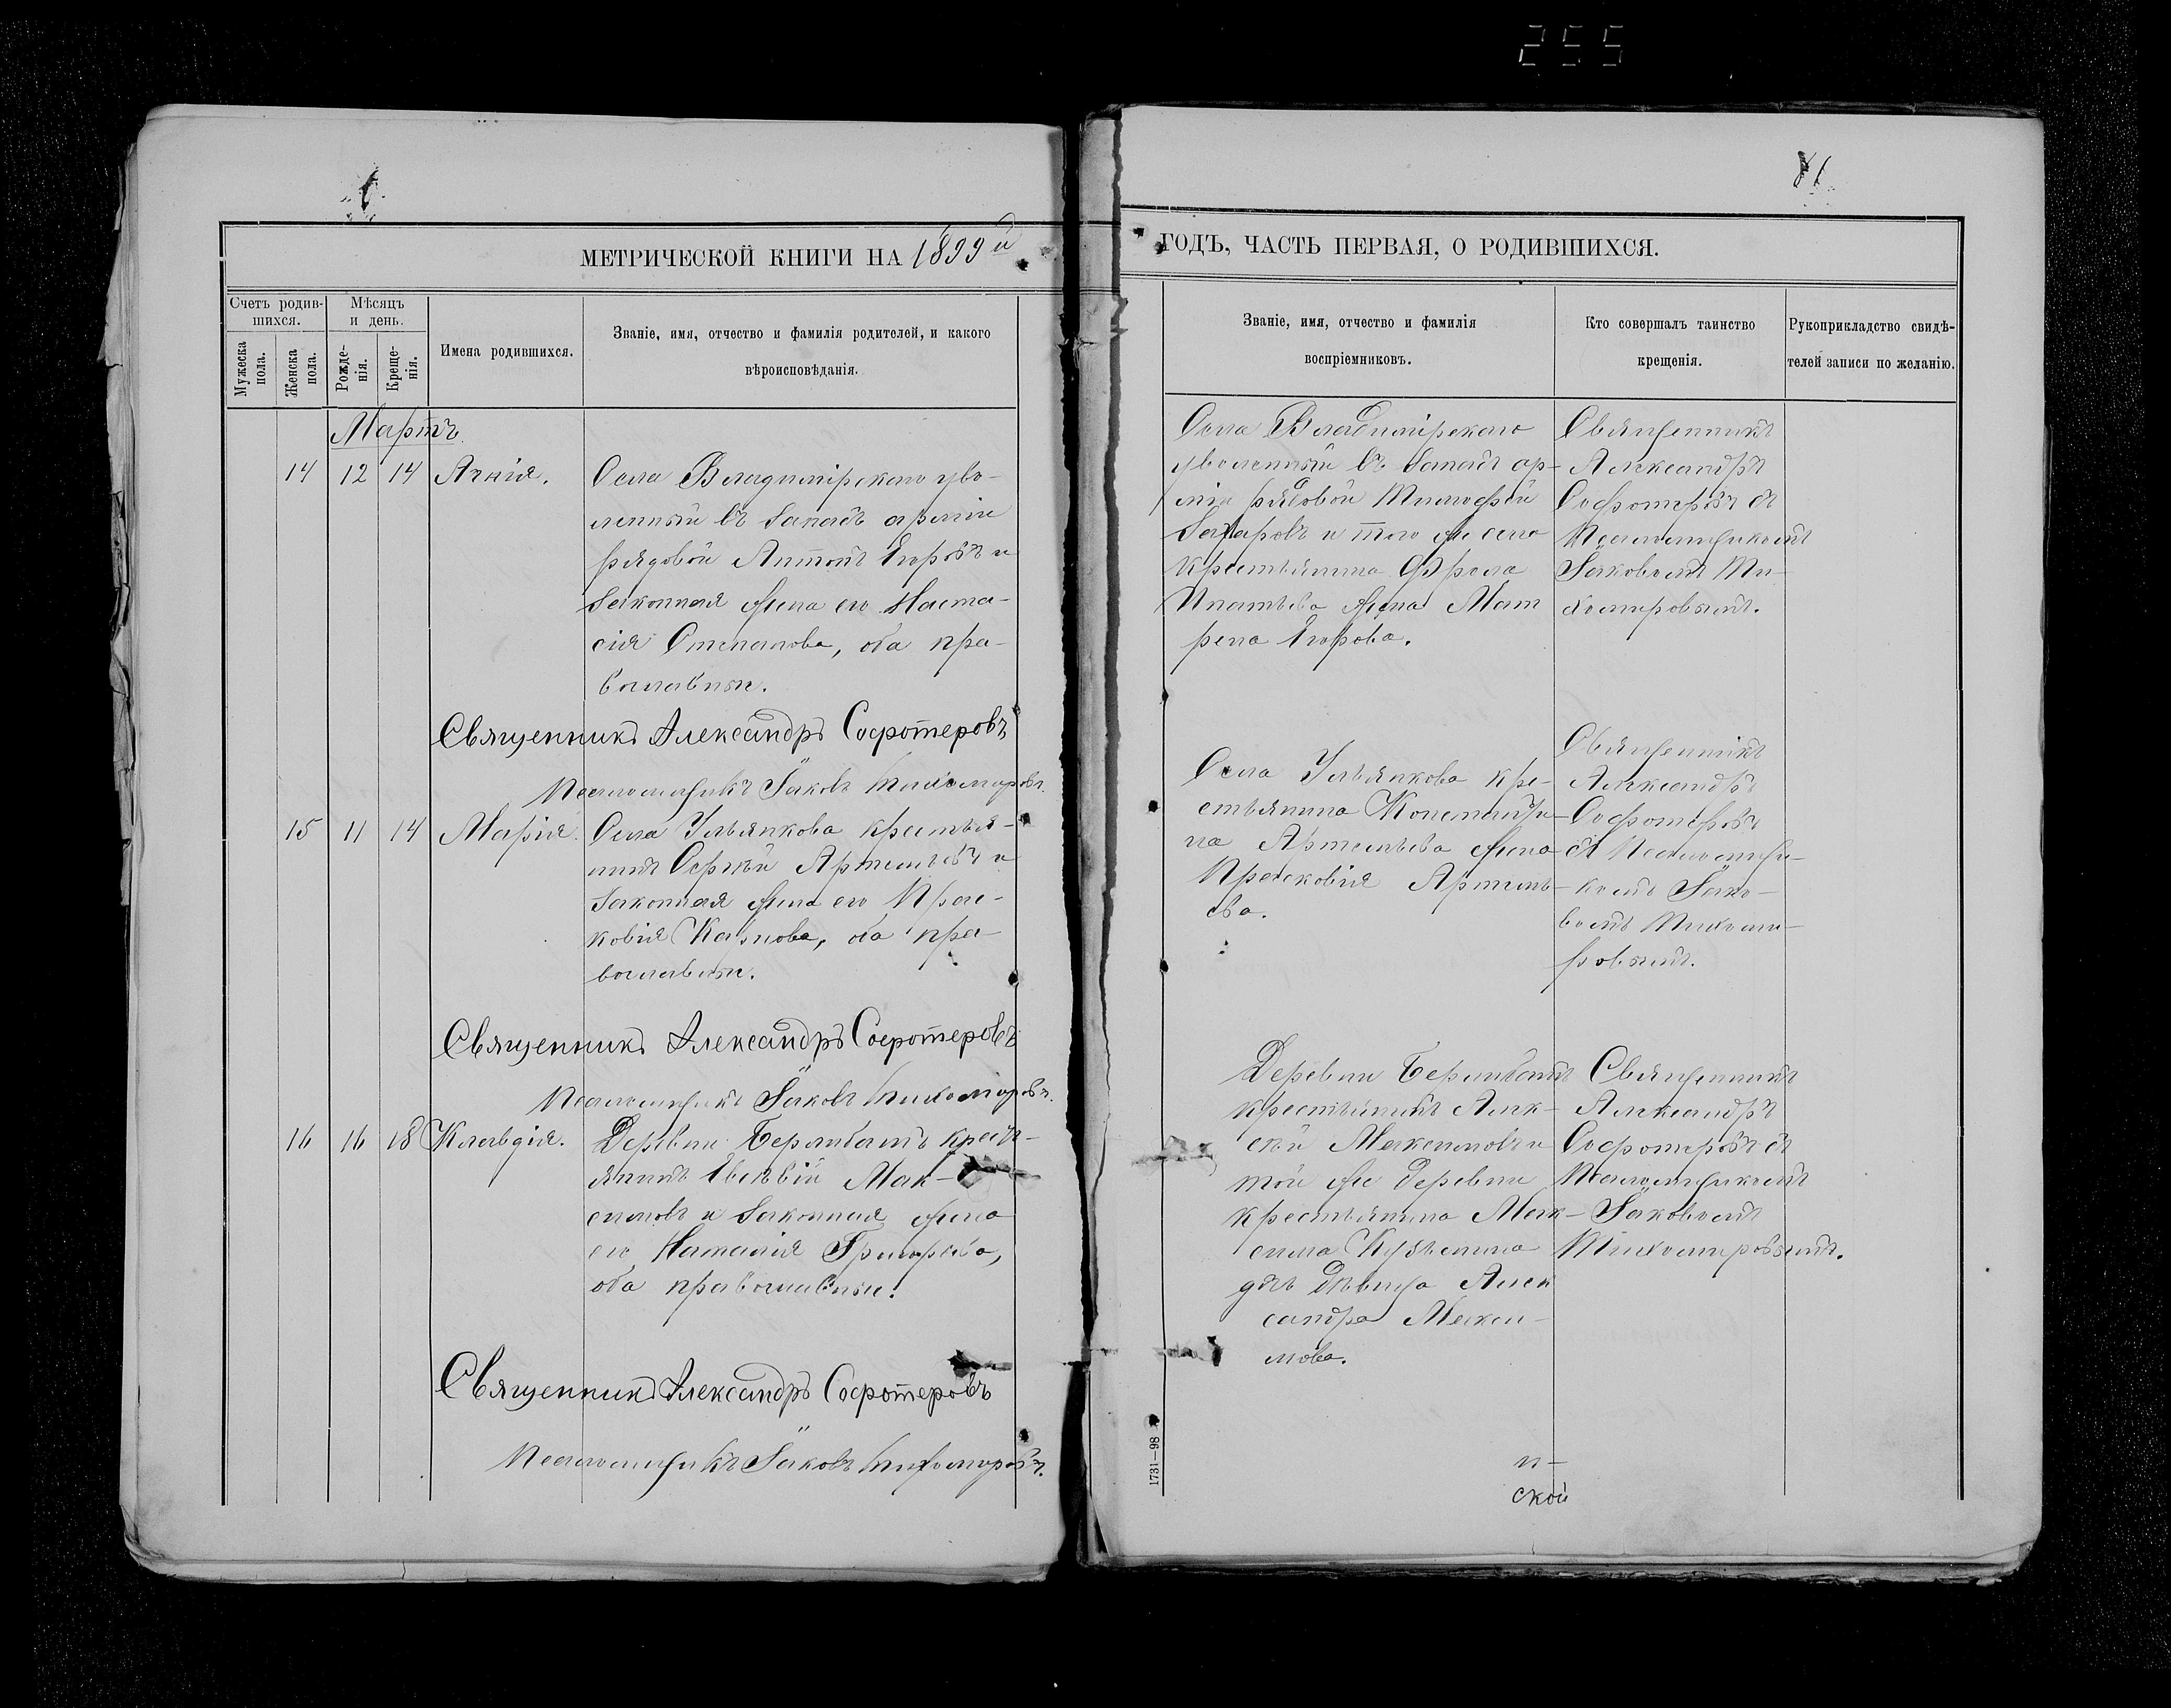 255
81
МЕТРИЧЕСКОЙ КНИГИ НА 1899й
ГОДЪ, ЧАСТЬ ПЕРВАЯ, О РОДИВШИХСЯ.
Счетъ родив-
шихся.
Мужеска
пола.
Женска
пола.
Мѣсяцъ
и день.
Рожде-
нія.
Креще-
нія.
Имена родившихся.
Званіе, имя, отчество и фамилія родителей, и какого
вѣроисповѣданія.
Званіе, имя, отчество и фамилія
воспріемниковъ.
Кто совершалъ таинство
крещенія.
Рукоприкладство свидѣ-
телей записи по желанію.
Мартъ
14 12 14 Агнія.
Села Владимірскаго уво-
ленный въ запасъ арміи
рядовой Антонъ Егоровъ и
законная жена его Наста-
сія Степанова, оба пра-
вославные.
Священникъ Александръ Сосротеровъ
Псаломщикъ Іаковъ Тихомировъ.
Села Владимірскаго
уволенный въ запасъ ар-
міи рядовой Тимофей
Захаровъ и того же села
крестьянина Фрола
Ипатьева жена Мат
рена Егорова.
Священникъ
Александръ
Сосротеровъ съ
Псаломщикомъ
Іаковомъ Ти-
хомировымъ.
15 11 14 Марія.
Села Ульянкова крестья-
нинъ Сергѣй Артемьевъ и
законная жена его Прас-
ковія Карпова, оба пра-
вославные.
Священникъ Александръ Сосротеровъ
Псаломщикъ Іаковъ Тихомировъ.
Села Ульянкова кре-
стьянина Константи-
на Артемьева жена
Прасковія Артемь-
ева.
Священникъ
Александръ
Сосротеровъ
съ Псаломщи-
комъ Іако-
вомъ Тихоми-
ровымъ.
16 16 18 Клавдія.
Деревни крестъ-
янинъ Евсѣвій Мак-
симовъ и законная жена
его Наталія Григорьева,
оба православные.
Священникъ Александръ Сосротеровъ
Псаломщикъ Іаковъ Тихомировъ.
Деревни
крестьянинъ Алек-
сѣй Максимовъ и
той же деревни
крестьянина Мак-
сима Кузьмина
дѣвица Алек
сандра Макси-
мова.
Священникъ
Александръ
Сосротеровъ съ
Псаломщикомъ
Іаковомъ
Тихомировымъ.
1731—98
и-
ской